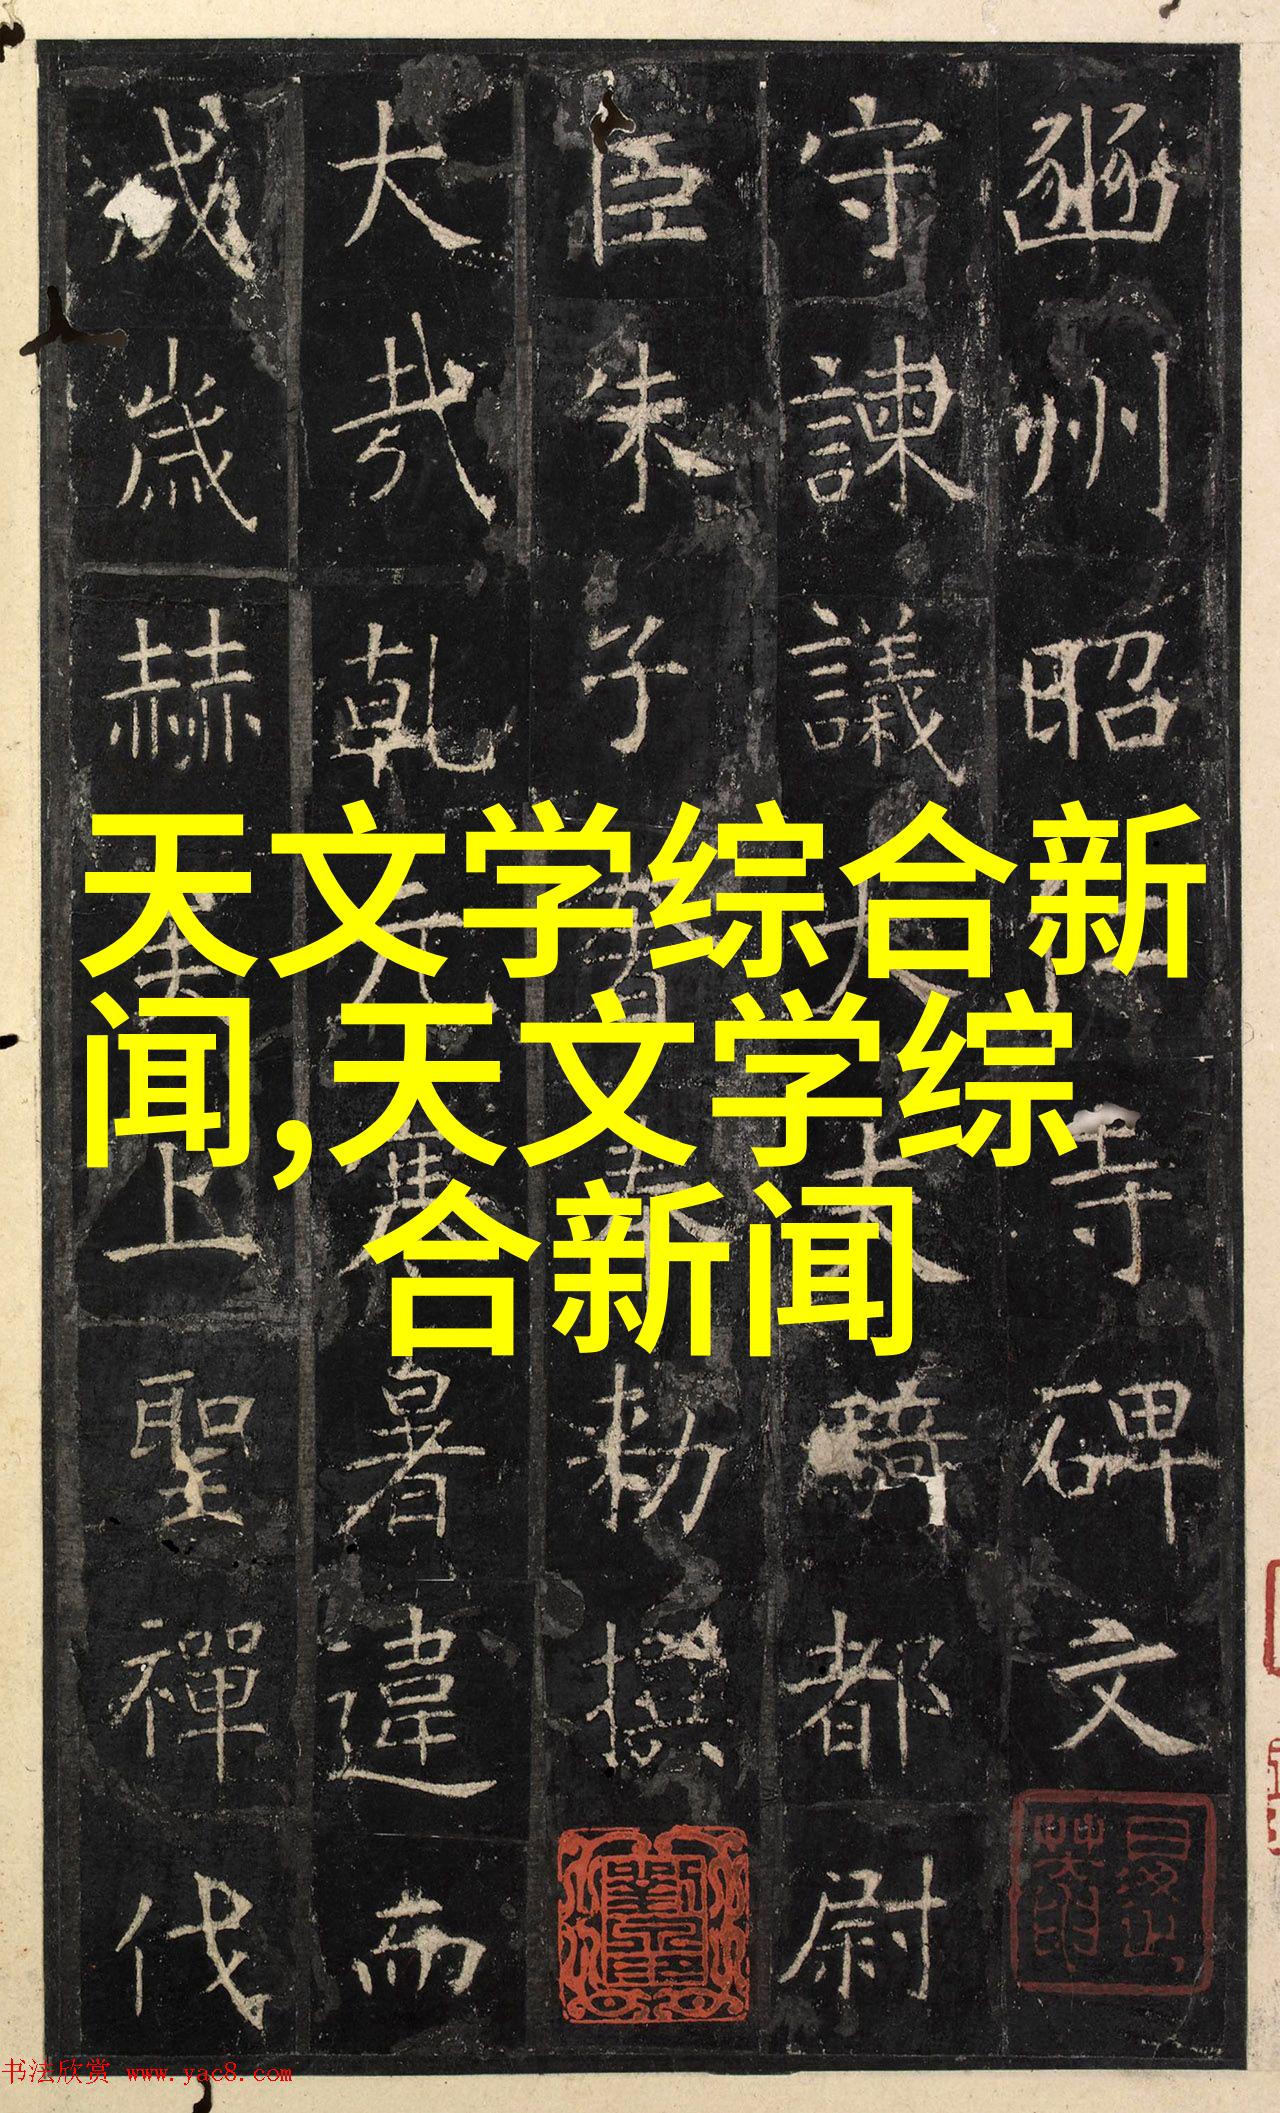 天文学综合新
闻,天文学综
合新闻
豳州昭仁寺碑文
守諫議大夫騎都尉
臣朱子奢奉勑撰
大哉乾元寒暑違而
成歲赫矣上聖禪代
书法欣赏 www.yac8.com